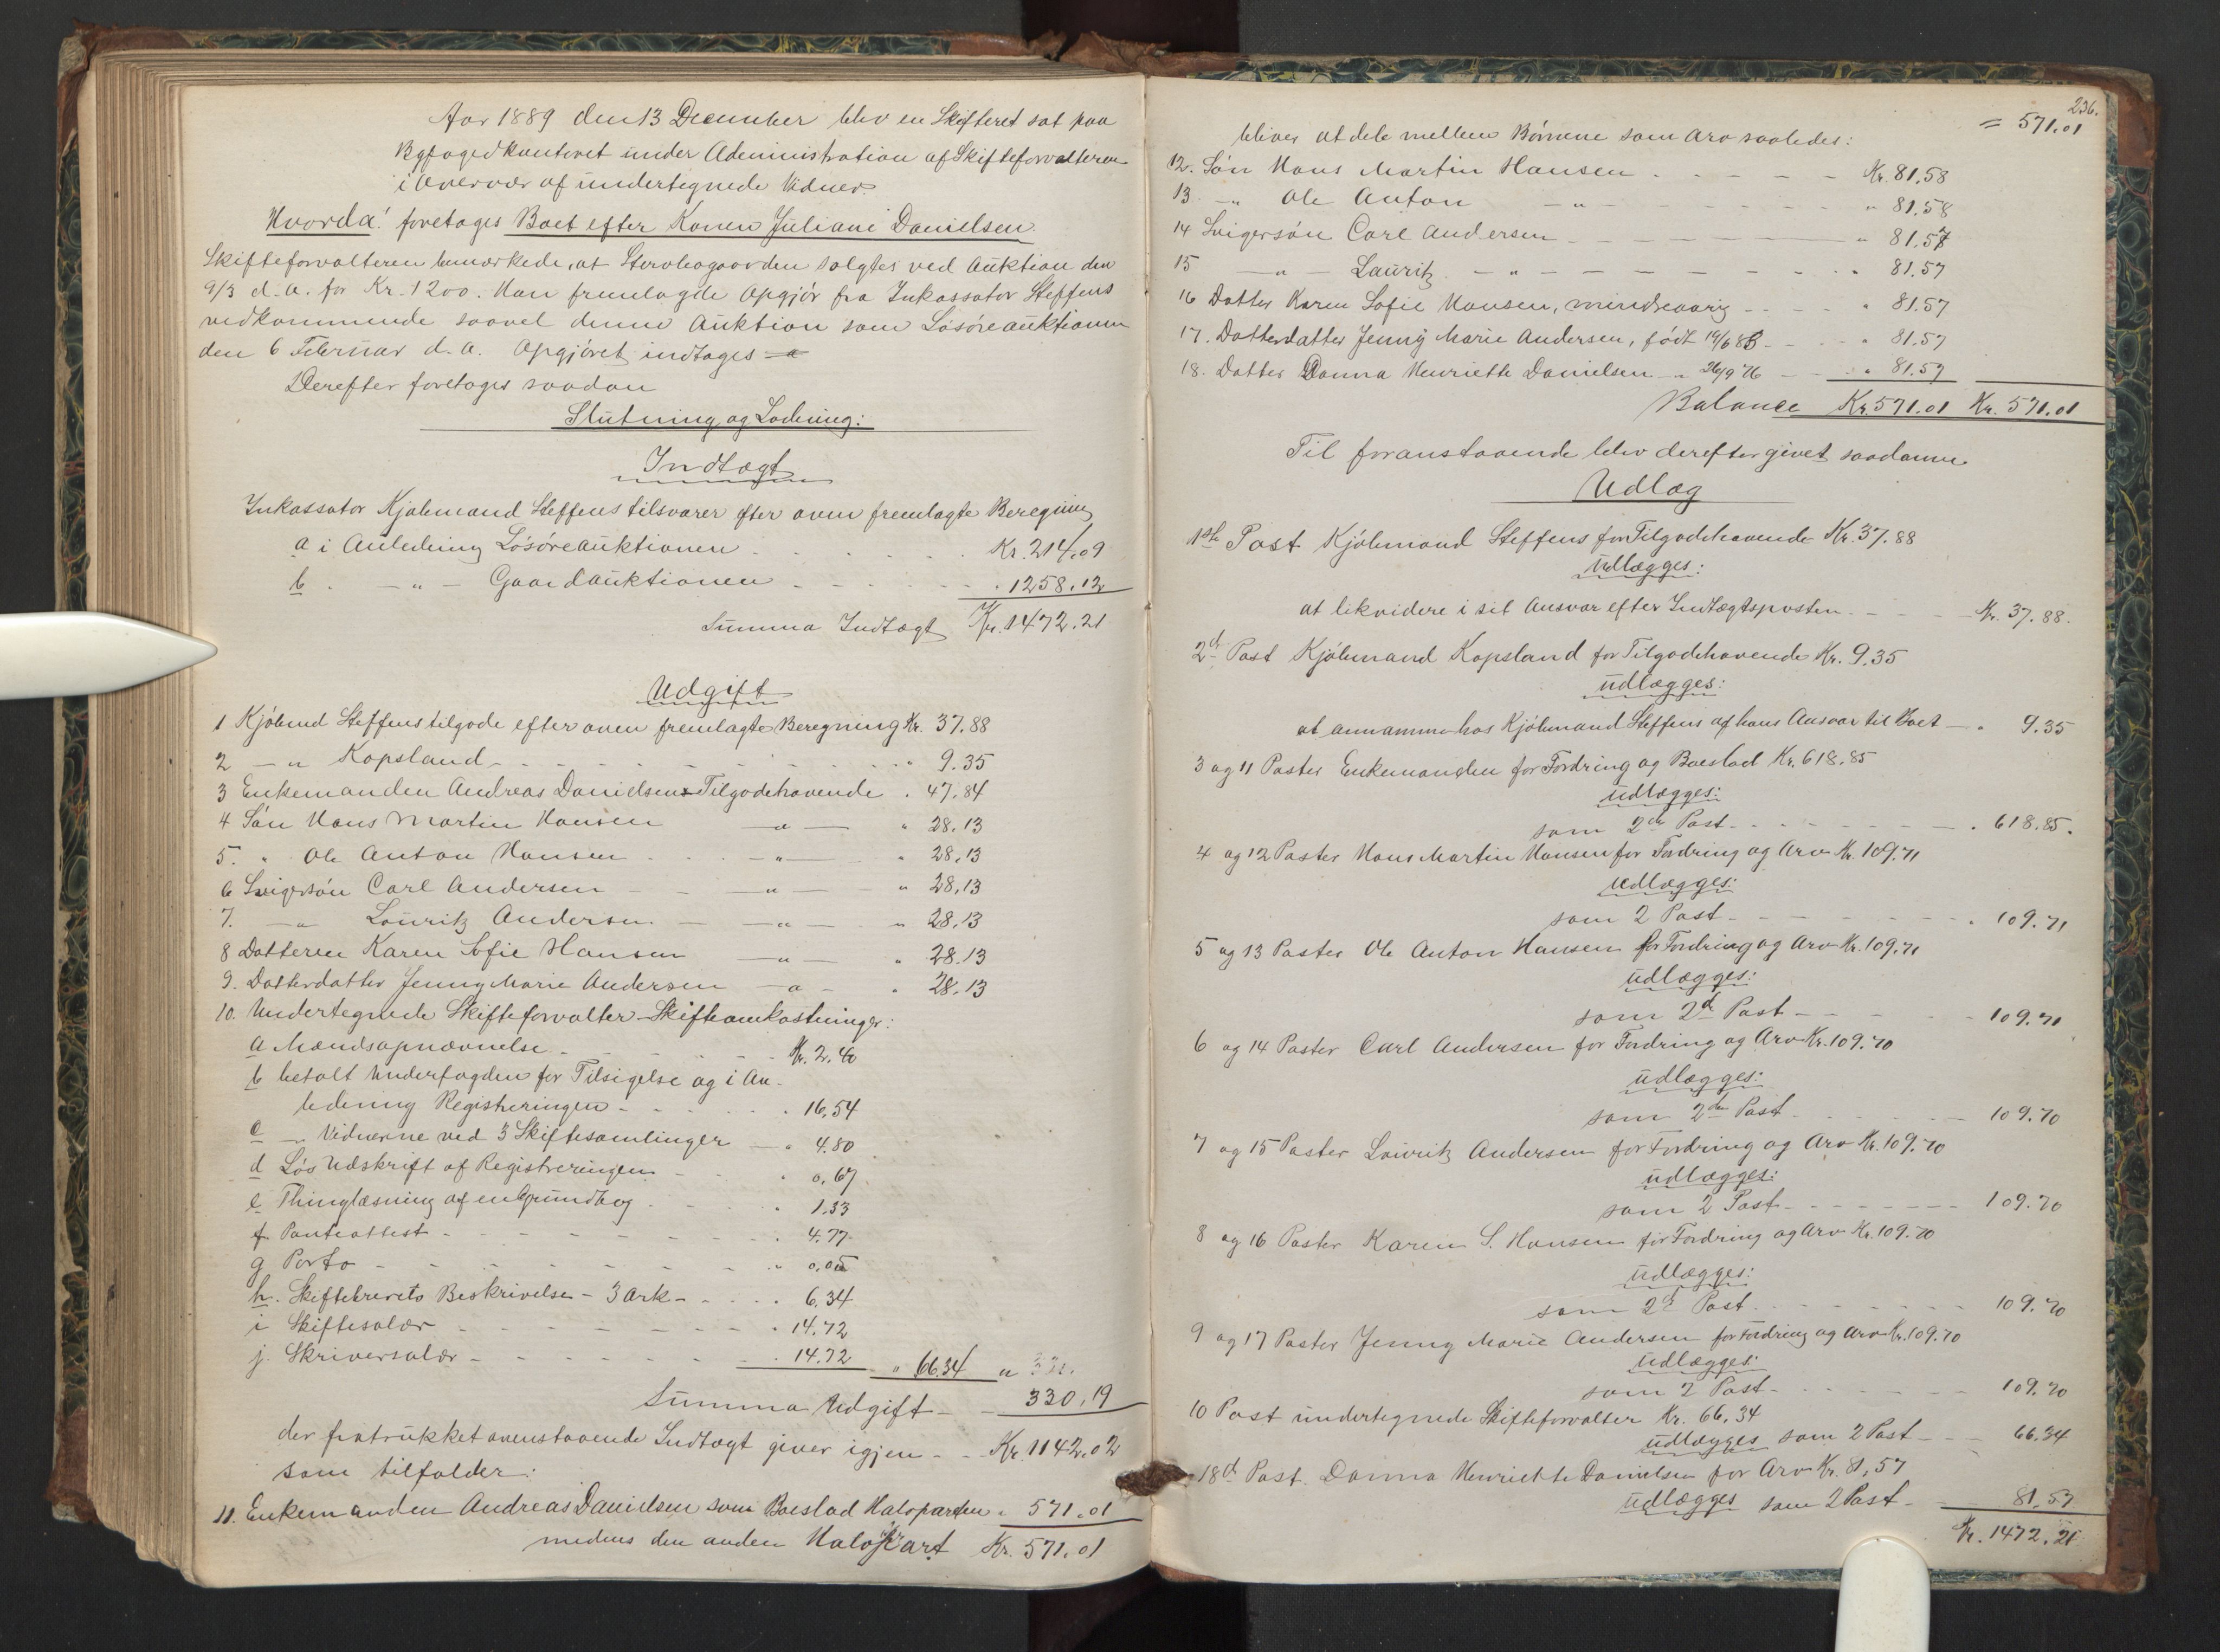 Aar 1889 den 13 December blev en Skifteret sat paa
Byfogedkontoret under Administration af Skifteforvalteren
i Overvær af undertegnede Vidner.
Hvorda: foretages Boet efter Konen Juliane Danielsen.
Skifteforvalteren bemærkede, at Stervbogaarden solgtes ved Auktion den
9/3 d. A. for Kr. 1200. Han fremlagde Opgjör fra Inkassator Steffens
vedkommende saavel denne Auktion som Lösöreauktionen
den 6 Februar d. A. Opgjöret indtages
Derefter foretoges saadan
Slutning og Lodning:
Indtægt
Inkassator Kjöbmand Steffens tilsvarer efter oven fremlagte Beregning
a i Anledning Lösöreauktionen Kr. 214.09
b. — " — Gaardauktionen " 1258.12
Summa Indtægt Kr. 1472.21
Udgift
1 Kjöbmd Steffens tilgode efter oven fremlagte Beregning Kr. 37.88
2 — " Kopsland " 9.35
3 Enkemanden Andreas Danielsens Tilgodehavende " 47.84
4 Sön Hans Martin Hansen — " — " 28.13
5. " Ole Anton Hansen — " — " 28.13
6 Svigersön Carl Andersen — " — " 28.13
7. — " Lauritz Andersen — " — " 28.13
8 Datteren Karen Sofie Hansen — " — " 28.13
9. Datterdatter Jenny Marie Andersen — " — " 28.13
10. Undertegnede Skifteforvalter Skifteomkostninger:
a Mændsopnævnelse Kr. 2.40
b betalt Underfogden for Tilsigelse og i An-
ledning Registreringen " 16.54
c — " Vidnerne ved 3 Skiftesamlinger " 4.80
d Lös Udskrift af Registreringen " 0.67
e Thinglæsning af en Grundbog " 1.33
f Panteattest " 4.77
g Porto " 0.05
h. Skiftebrevets Beskrivelse - 3 Ark " 6.34
i Skiftesalær " 14.72
j. Skriversalær " 14.72 " 66.34 "
Summa Udgift 330.19
der fratrukket ovenstaaende Indtægt giver igjen Kr. 1142.02
som tilfalder:
11. Enkemanden Andreas Danielsen som Boeslod Halvparten " 571.01
medens den anden Halvpart Kr. 571.01
236.
= 571.01
bliver at dele mellem Börnene som Arv saaledes:
12. Sön Hans Martin Hansen Kr. 81.58
13 — " Ole Anton — " — " 81.58
14 Svigersön Carl Andersen " 81.57
15 — " — Lauritz — " — " 81.57
16 Datter Karen Sofie Hansen, mindreaarig " 81.57
17. Datterdatter Jenny Marie Andersen, födt 19/6 86 " 81.57
18. Datter Danna Henriette Danielsen " 26/9 76 " 81.57
Balance Kr. 571.01 Kr. 571.01
Til foranstaaende blev derefter givet saadanne
Udlæg
1ste Post Kjöbmand Steffens for Tilgodehavende Kr. 37.88
udlægges:
at likvidere i sit Ansvar efter Indtægtsposten Kr. 37.88.
2den Post Kjöbmand Kopsland for Tilgodehavende Kr. 9.35
udlægges:
at annamme hos Kjöbmand Steffens af hans Ansvar til Boet " 9.35
3 og 11 Poster Enkemanden for Fordring og Boeslod Kr. 618.85
udlægges:
som 2den Post " 618.85.
4 og 12 Poster Hans Martin Hansen for Fordring og Arv Kr. 109.71
udlægges:
som 2 Post " 109.71
5 og 13 Poster Ole Anton Hansen for Fordring og Arv Kr. 109.71
udlægges:
som 2d Post 109.71
6 og 14 Poster Carl Andersen for Fordring og Arv Kr. 109.70
udlægges:
som 2den Post 109.70
7 og 15 Poster Lauritz Andersen for Fordring og Arv Kr. 109.70
udlægges:
som 2 Post 109.70
8 og 16 Poster Karen S. Hansen for Fordring og Arv Kr. 109.70
udlægges:
som 2d Post 109.70
9 og 17 Poster Jenny Marie Andersen for Fordring og Arv Kr. 109.70
udlægges:
som 2 Post 109.70
10 Post undertegnede Skifteforvalter Kr. 66.34
udlægges som 2 Post 66.34
18d Post. Danna Henriette Danielsen for Arv Kr. 81.57
udlægges som 2 Post 81.57
Kr. 1472.21